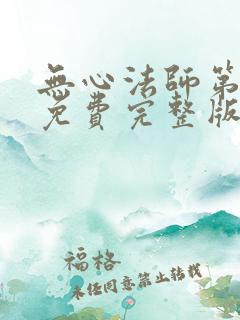 無心法師第
免費完整版
福格
未經同意禁止轉載